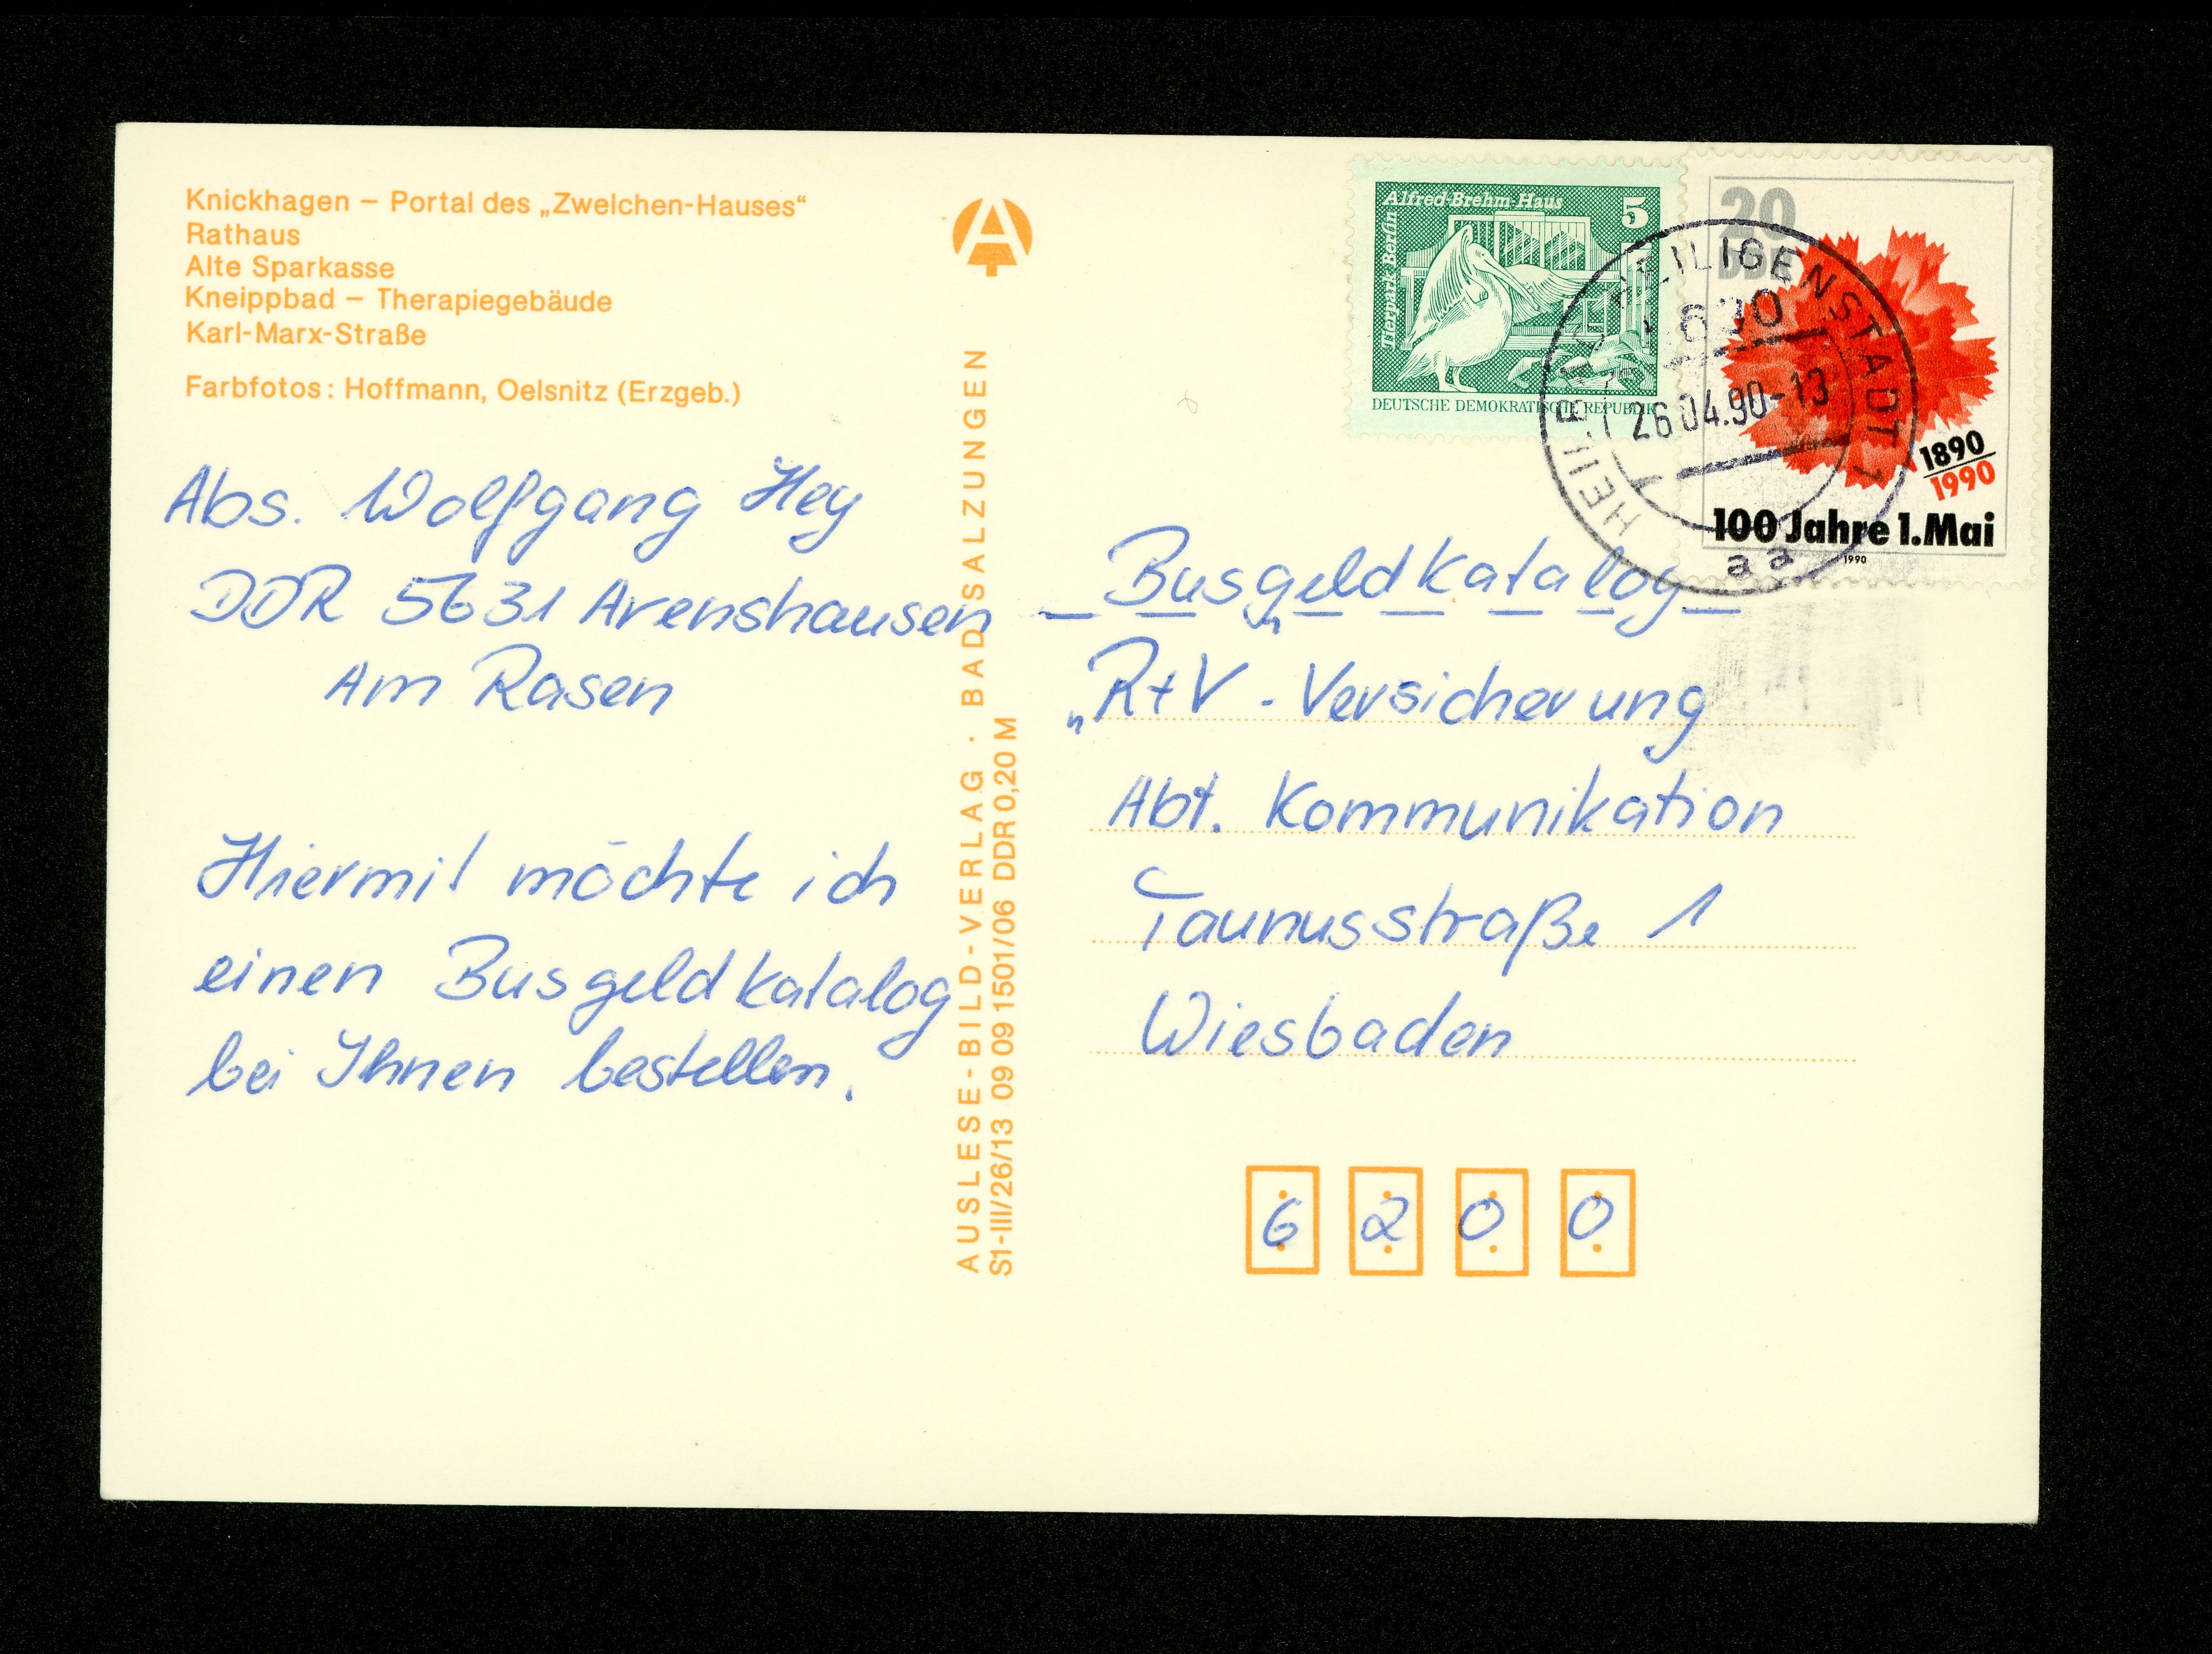 Knickhagen – Portal des „Zwelchen-Hauses“
Rathaus
Alte Sparkasse
Kneippbad – Therapiegebäude
Karl-Marx-Straße
Farbfotos: Hoffmann, Oelsnitz (Erzgeb.)
Abs. Wolfgang Hey
DDR 5631 Arenshausen
Am Rasen
Hiermit möchte ich
einen Busgeldkatalog
bei Ihnen bestellen.
AUSLESE-BILD-VERLAG · BAD SALZUNGEN
S1-III/26/13 09 09 1501/06 DDR 0,20 M
Alfred-Brehm-Haus
5
Tierpark Berlin
DEUTSCHE DEMOKRATISCHE REPUBLIK
20
DDR
1890
1990
100 Jahre 1.Mai
1990
HEILIGENSTADT 1
26.04.90-13
HEILBAD
aa
Busgeldkatalog
„R+V - Versicherung“
Abt. Kommunikation
Taunusstraße 1
Wiesbaden
6200